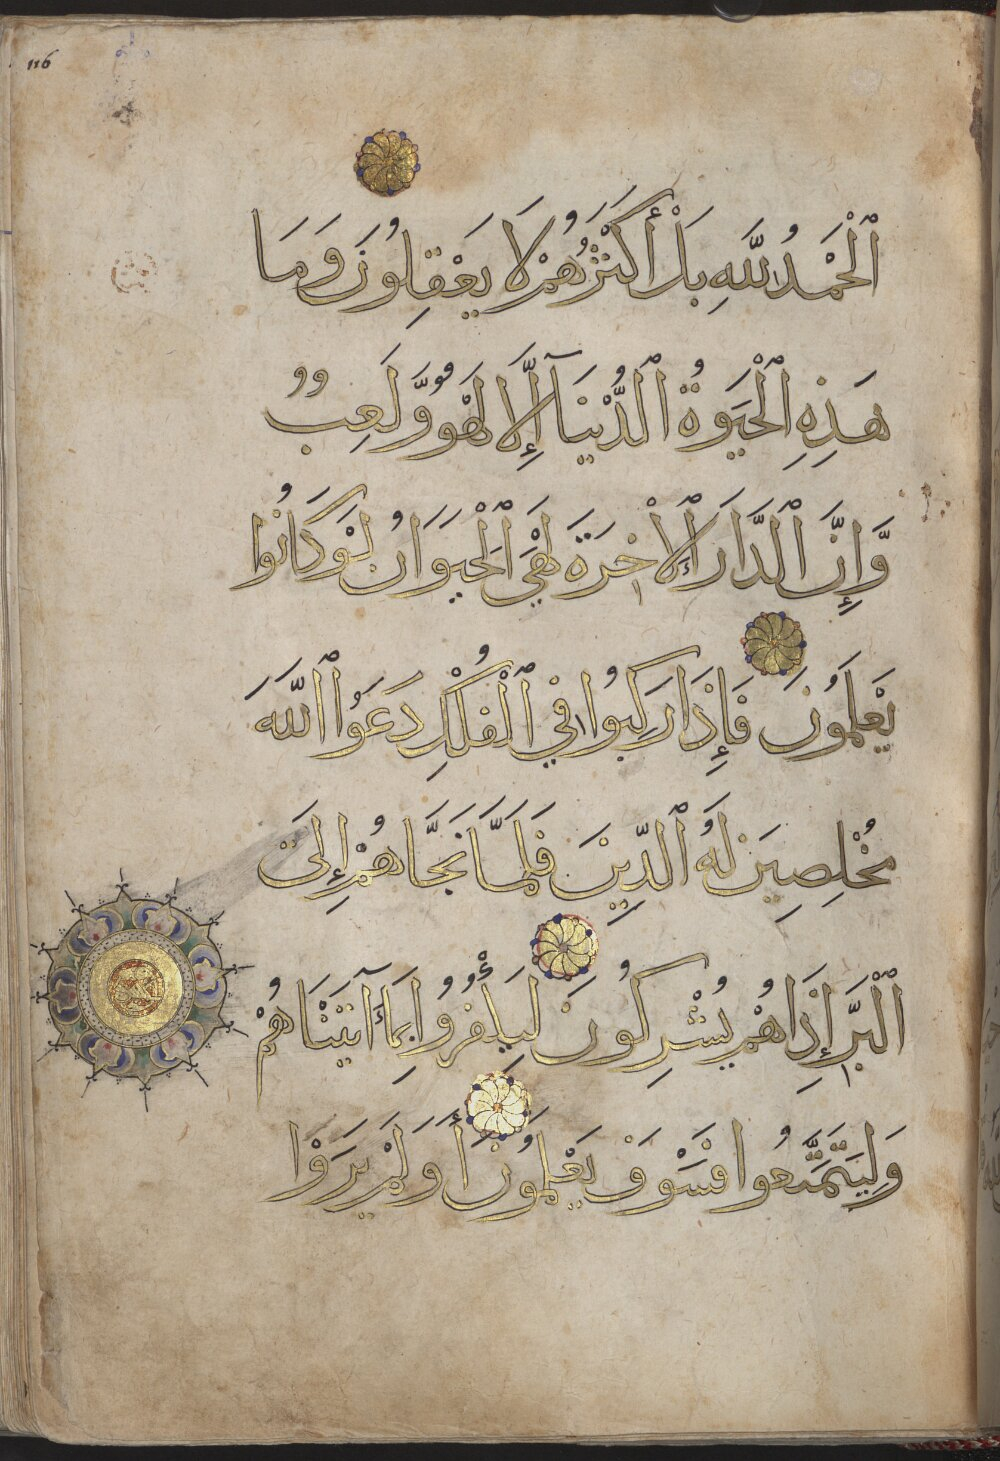 116
ٱلْحَمْدُ لِلَّهِ بَلْ أَكْثَرُهُمْ لَا يَعْقِلُونَ وَمَا
هَذِهِ ٱلْحَيَوةُ ٱلدُّنْيَآ إِلَّا لَهْوٌ وَّلَعِبٌ
وَّإِنَّ ٱلدَّارَ ٱلْأٓخِرَةَ لَهِيَ ٱلْحَيَوَانُ لَوْ كَانُوا
يَعْلَمُونَ فَإِذَا رَكِبُوا فِي ٱلْفُلْكِ دَعَوُا ٱللَّهَ
مُخْلِصِينَ لَهُ ٱلدِّينَ فَلَمَّا نَجَّاهُمْ إِلَى
ٱلْبَرِّ إِذَا هُمْ يُشْرِكُونَ لِيَكْفُرُوا بِمَآ آتَيْنَاهُمْ
وَلِيَتَمَتَّعُوا فَسَوْفَ يَعْلَمُونَ أَوَلَمْ يَرَوْا